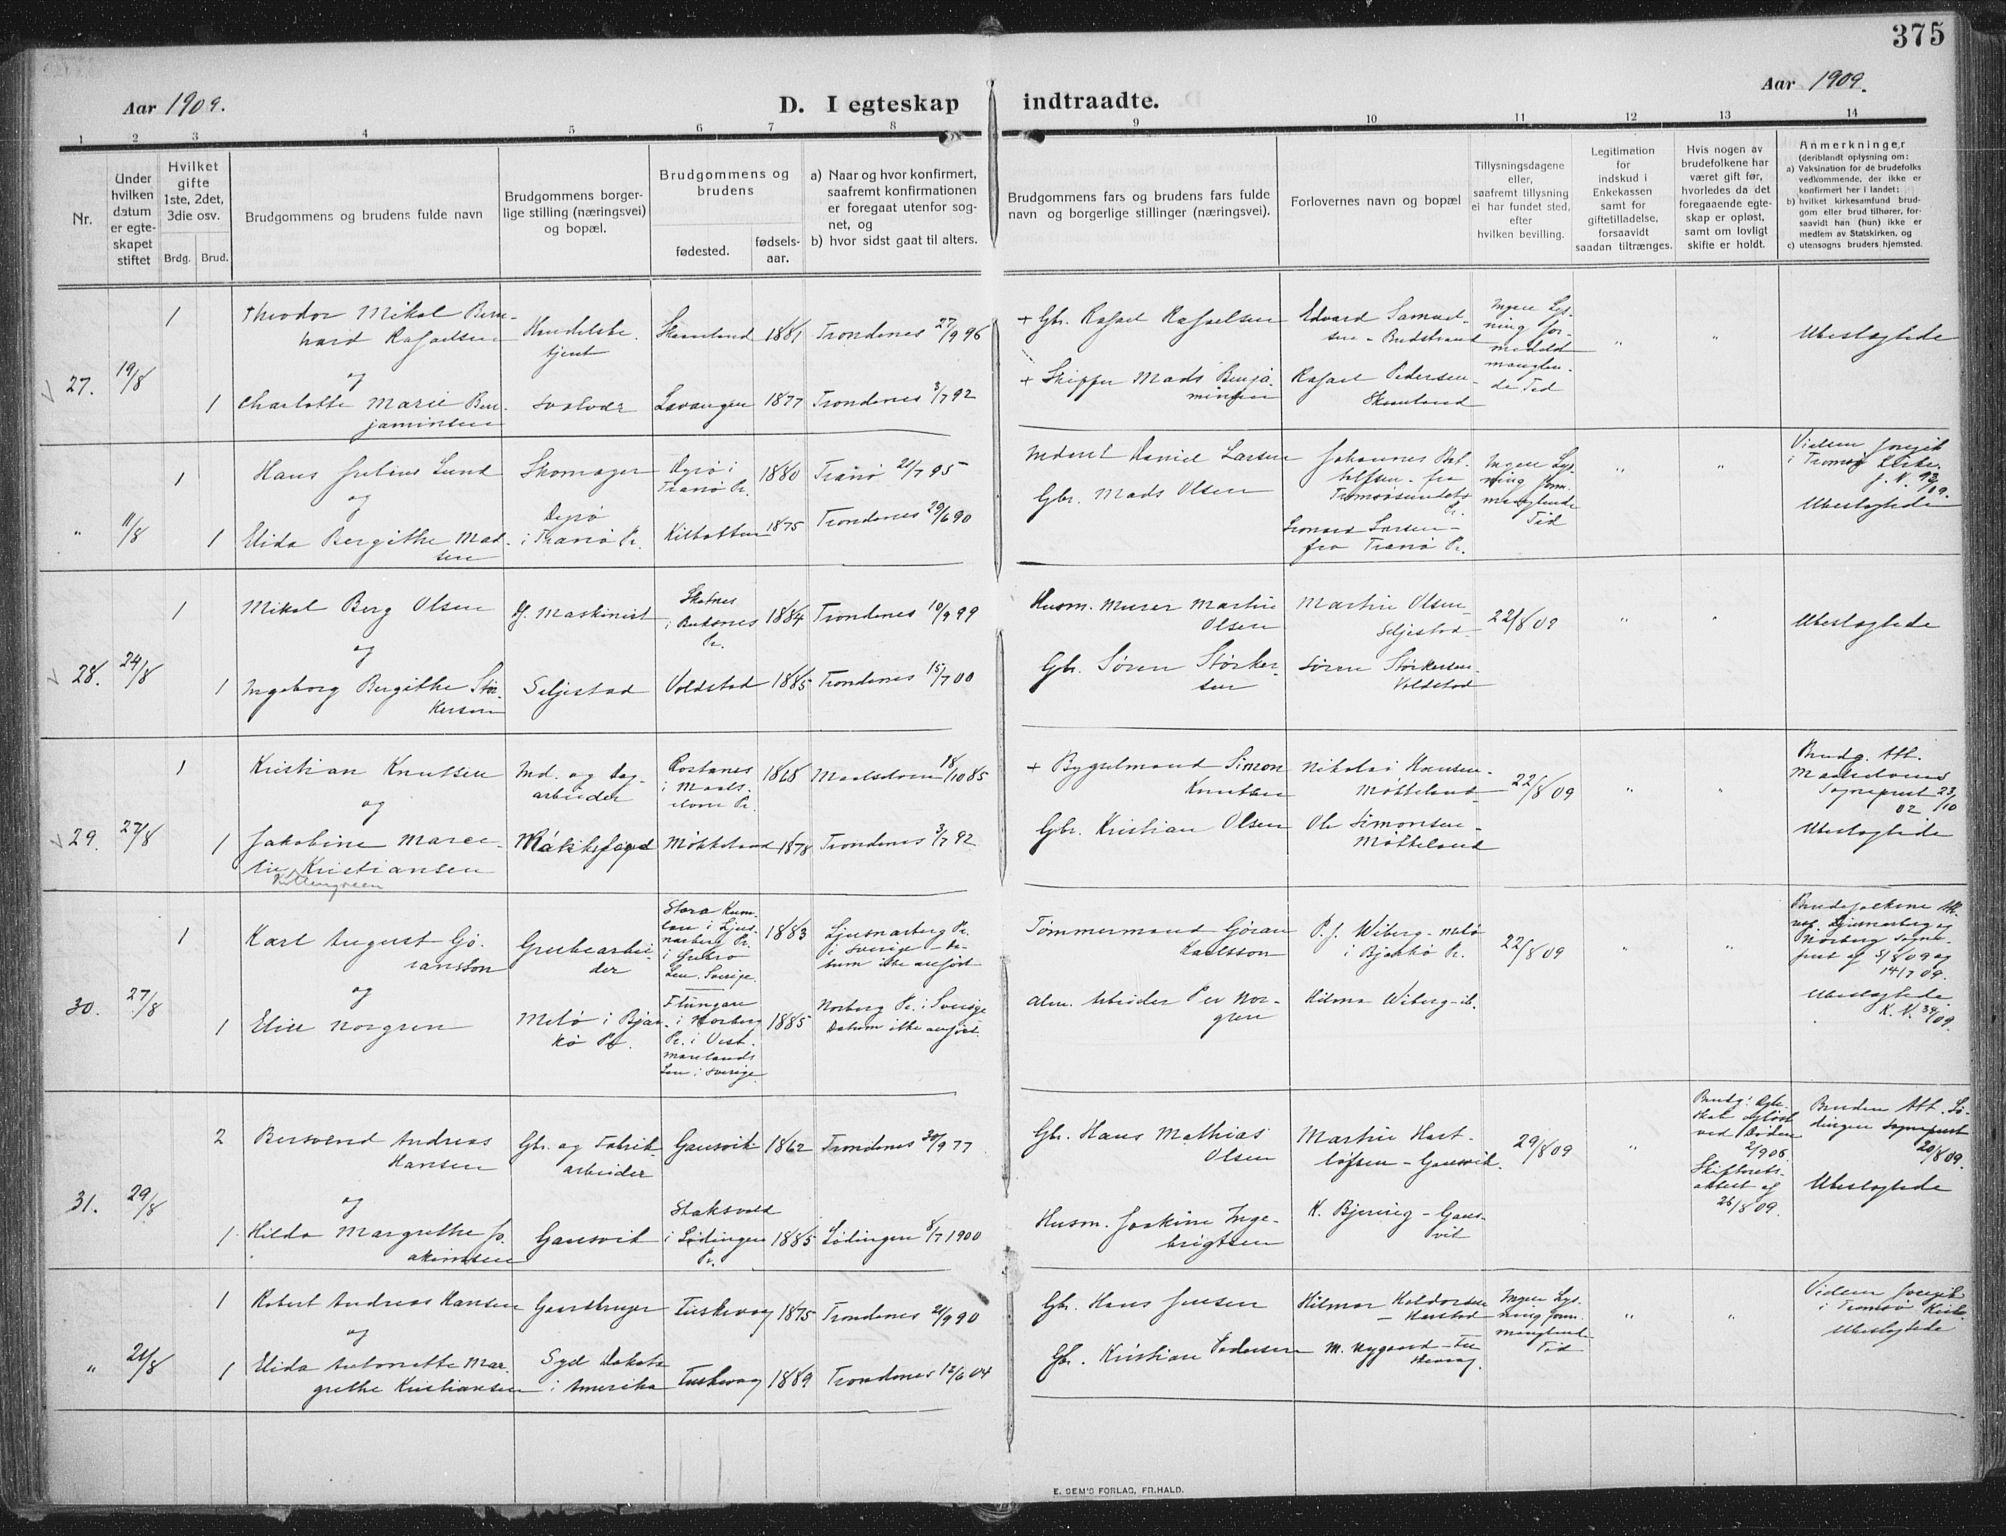 375
Aar 1909.
D. I egteskap indtraadte.
Aar 1909.
1 2 3 4 5 6 7 8 9 10 11 12 13 14
Nr.
Under hvilken datum er egteskapet stiftet
Hvilket gifte 1ste, 2det, 3die osv.
Brdg. Brud.
Brudgommens og brudens fulde navn
Brudgommens borgerlige stilling (næringsvei) og bopæl.
Brudgommens og brudens
fødested.
fødselsaar.
a) Naar og hvor konfirmert, saafremt konfirmationen er foregaat utenfor sognet, og
b) hvor sidst gaat til alters.
Brudgommens fars og brudens fars fulde navn og borgerlige stillinger (næringsvei).
Forlovernes navn og bopæl
Tillysningsdagene eller, saafremt tillysning ei har fundet sted, efter hvilken bevilling.
Legitimation for indskud i Enkekassen samt for giftetilladelse, forsaavidt saadan tiltrænges.
Hvis nogen av brudefolkene har været gift før, hvorledes da det foregaaende egteskap er opløst, samt om lovligt skifte er holdt.
Anmerkninger
(deriblandt oplysning om:
a) Vaksination for de brudefolks vedkommende, der ikke er konfirmert her i landet;
b) hvilket kirkesamfund brudgom eller brud tilhører, forsaavidt han (hun) ikke er medlem av Statskirken, og
c) utensogns bruders hjemsted.
27. 19/8
1 Theodor Mikal Bernhard Rafaelsen
og
1 Charlotte Marie Benjaminsen
Handelsbetjent
Svolvær
Skaanland 1881 Trondenes 27/9 96
Lavangen 1877 Trondenes 3/7 92
+ Gbr. Rafael Rafaelsen
+ Skipper Mads Benjaminsen
Edvard Samuelsen -
Rafael Pedersen - Skaanland
Ingen Lysning formedelst manglende Tid
" "
Ubeslægtede
" 11/8
1 Hans Julius Lund
og
1 Elida Bergithe Madsen
Skomager
Dyrø i Tranø Pr.
Dyrø i Tranø Pr. 1880 Tranø 21/7 95
Kilbotten 1875 Trondenes 29/6 90
Inderst Daniel Larsen
Gbr. Mads Olsen
Johannes - fra Tromsøsundets Pr.
Leonard Larsen - fra Tranø Pr.
Ingen Lysning form. manglende Tid
" "
Vielsen foregik i Tromsø Kirke.
Ubeslægtede
28. 24/8
1 Mikal Berg Olsen
og
1 Ingeborg Bergithe Størkersen
Maskinist
Seljestad
i Buksnes Pr. 1884 Trondenes 10/9 99
Voldstad 1885 Trondenes 15/7 00
Husm. Murer Martin Olsen
Gbr. Søren Størkersen
Martin Olsen - Seljestad
Søren Størkersen - Voldstad
22/8 09
" "
Ubeslægtede
29. 27/8
1 Kristian Knutsen
og
1 Jakobine Kristiansen
Ind. og Dagarbeider
Rostanes i Maalselven Pr. 1868 Maalselven 18/10 85
Møkkeland 1878 Trondenes 3/7 92
+ Bygselmand Simon Knutsen
Gbr. Kristian Olsen
Nikolai Hansen - Møkkeland
Ole Simonsen - Møkkeland
22/8 09
" "
Brudg. Att. Maalselvens Sogneprest 23/10 02
Ubeslægtede
30. 27/8
1 Karl August Göransson
og
1 Elise Norgren
Grubearbeider
Melø i Bjarkø Pr.
Stora i Ljusnarberg Pr. i Ørebro Len. Sverige 1883
i Norberg Pr. i Vestmanlands Len i Sverige 1885
Ljusnarberg Pr. i Sverige - Datum ikke anført
Norberg Pr. i Sverige Datum ikke anført.
Tømmermand Göran Karlsson
Arbeider Per Norgren
P. J. Wiberg - Melø i Bjarkø Pr.
Hilma Wiberg - ib.
22/8 09
" "
Brudefolkene Att. Ljusnarberg og Norberg Sogneprest af 5/8 09 og 14/7 09.
Ubeslægtede
31. 29/8
2 Bersvend Andreas Hansen
og
1 Hilda Margrethe Joakimsen
Gbr. og Fabrikarbeider
Gausvik
Gausvik 1862 Trondenes 30/9 77
i Lødingen Pr. 1885 Lødingen 8/7 1900
Gbr. Hans Mathias Olsen
Husm. Joakim Ingebrigtsen
Martin Hartløfsen - Gausvik
K. Bjering - Gausvik
29/8 09
"
Brudg. Egteskab opløst ved Døden 2/9 06. Skifteretsattest af 26/8 09.
Bruden Att. Lødingen Sogneprest 20/8 09.
Ubeslægtede
" 21/8
1 Robert Andreas Hansen
og
1 Elida Antonette Margrethe Kristiansen
Gaardbruger
Syd Dakota i Amerika
Tuskevaag 1875 Trondenes 21/9 90
Tuskevaag 1889 Trondenes 12/6 04
Gbr. Hans Jensen
Gbr. Kristian Pedersen
Hilmar Haldorsen - Harstad
M. Nygaard - Tuskevaag.
Ingen Lysning form. manglende Tid
" "
Vielsen foregik i Tromsø Kirke.
Ubeslægtede
E. SEM'S FORLAG, FR.HALD.